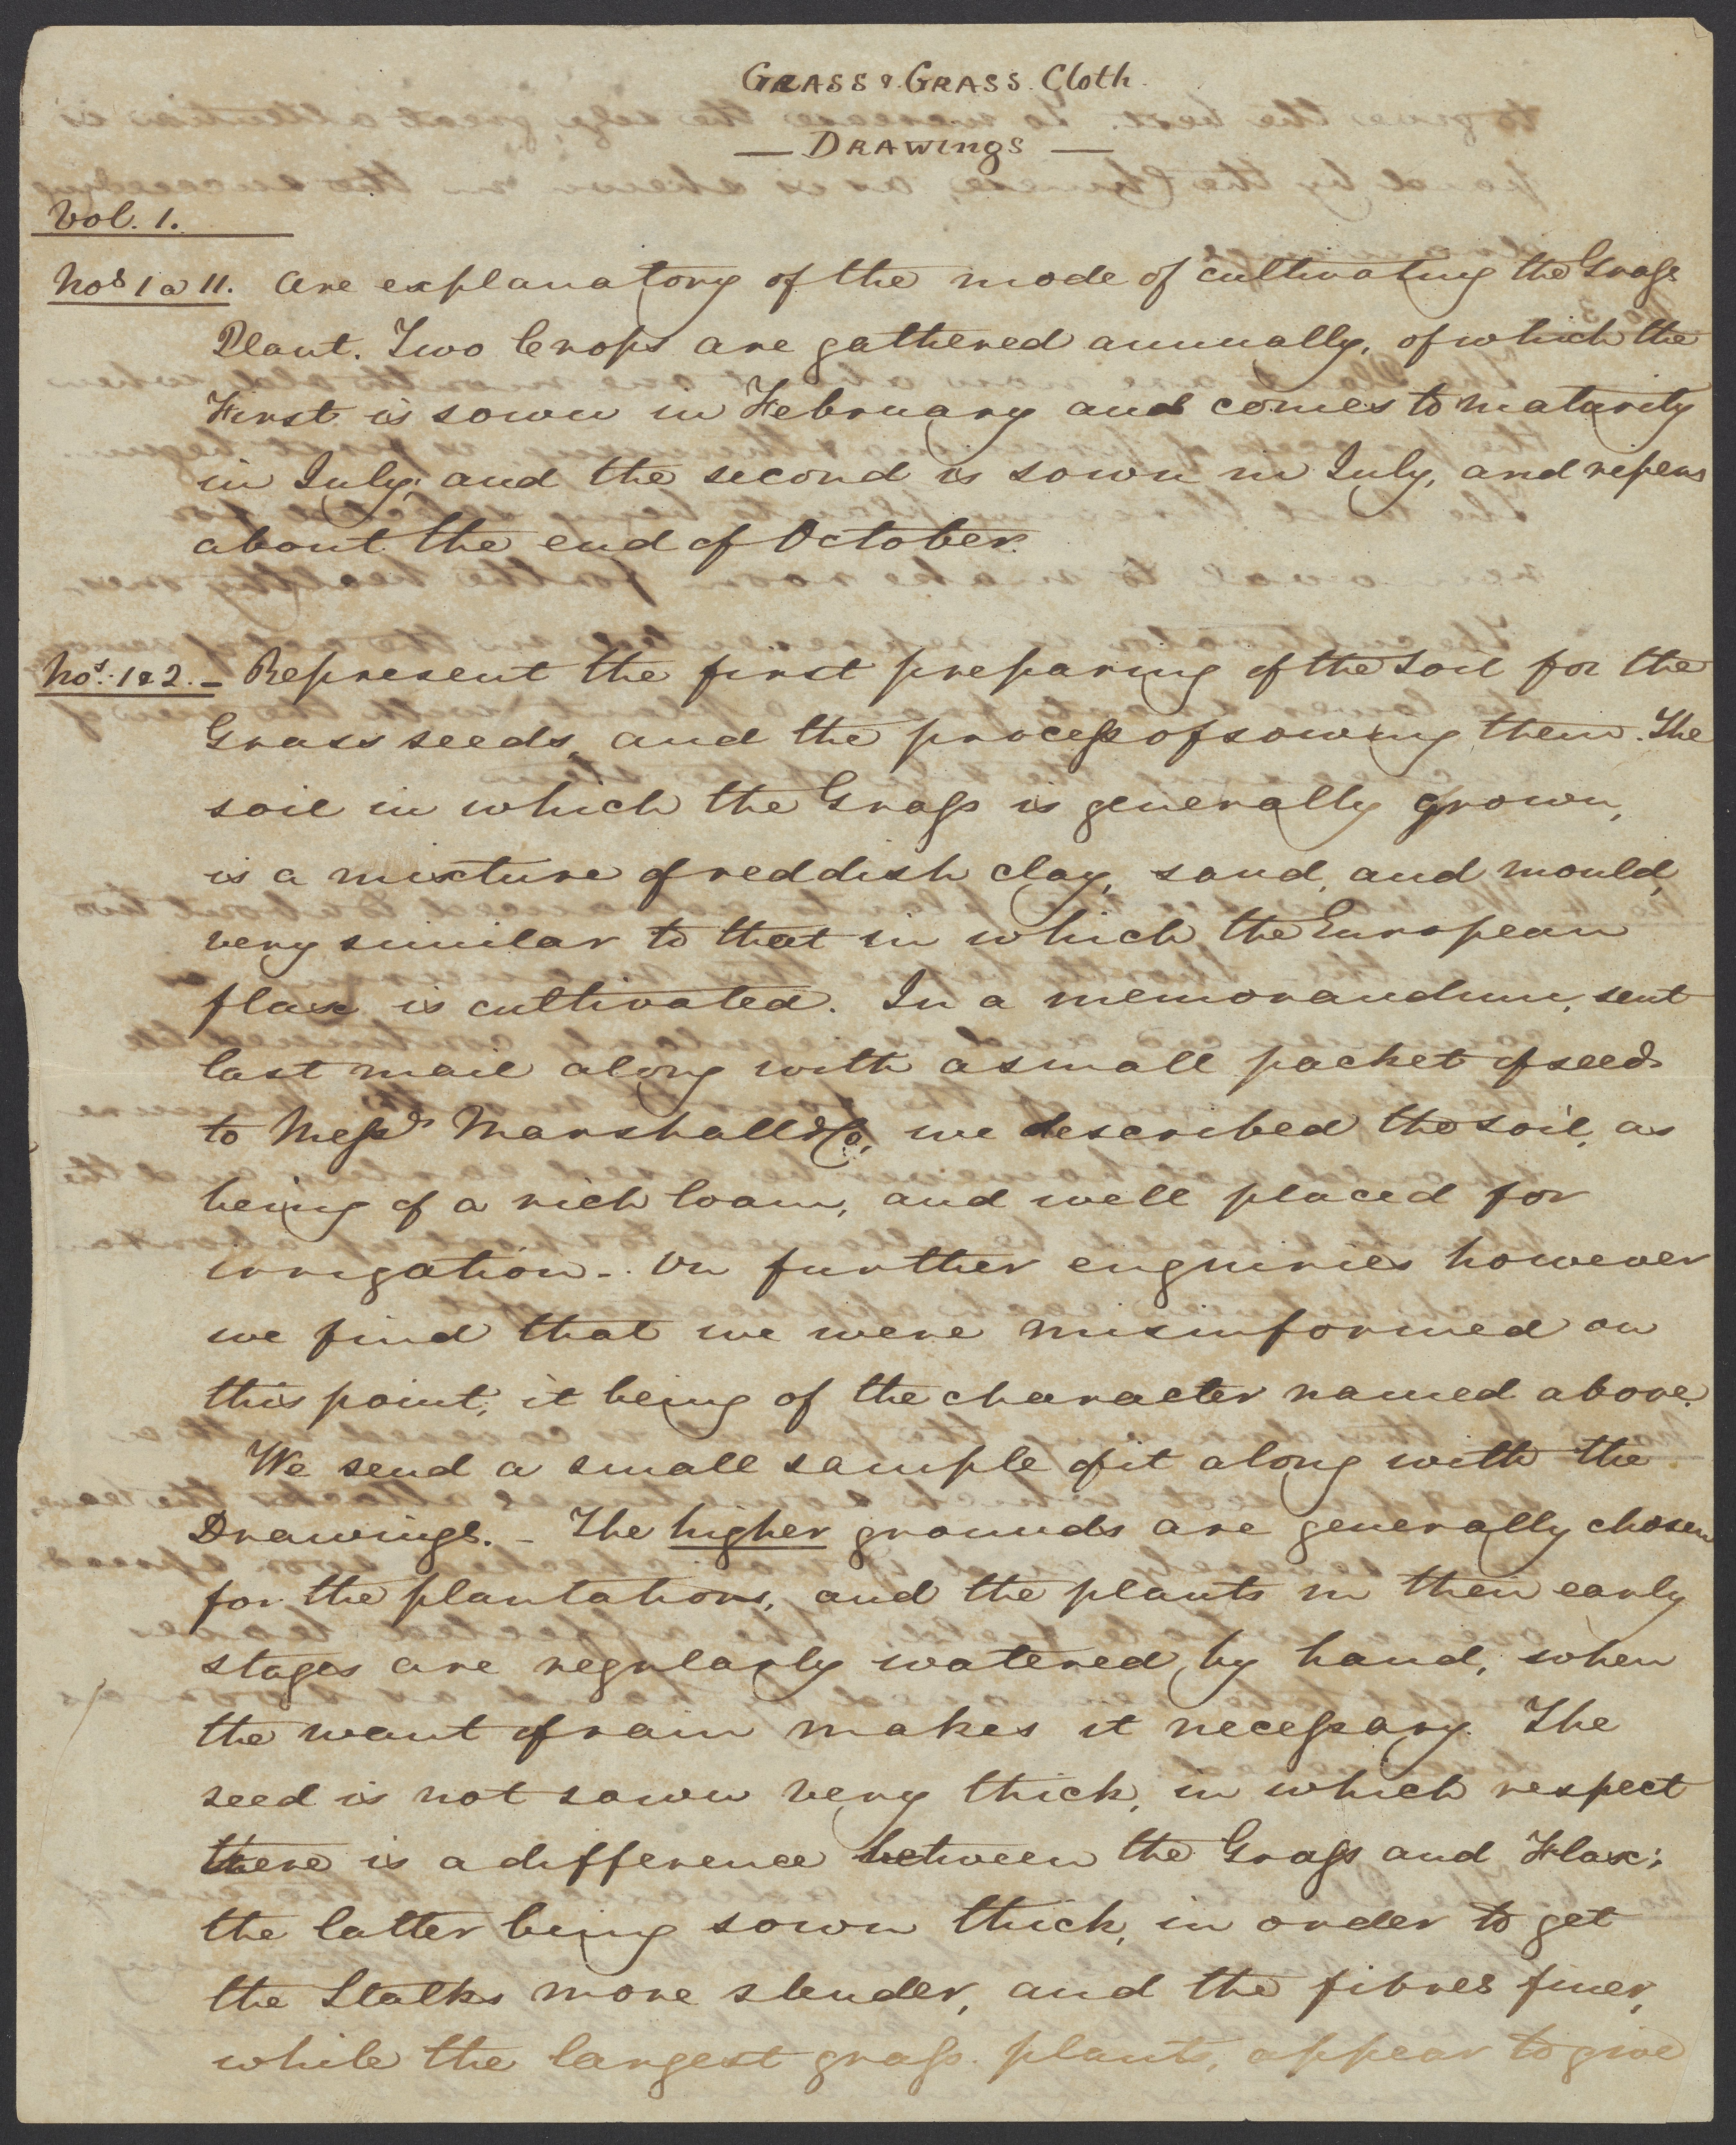 GRASS & GRASS Cloth.
— DRAWINGS —
Vol. 1.
Nos 1 a 11. Are explanatory of the mode of cultivating the Grass
Plant. Two Crops are gathered annually, of which the
First is sown in February and comes to maturity
in July; and the second is sown in July, and ripens
about the end of October.
Nos. 1 & 2. – Represent the first preparing of the soil for the
Grass seeds, and the process of sowing them. The
soil in which the Grass is generally grown,
is a mixture of reddish clay, sand, and mould,
very similar to that in which the European
flax is cultivated. In a memorandum, sent
last mail along with a small packet of seed
to Messrs Marshall & Co, we described the soil, as
being of a rich loam, and well placed for
irrigation. – On further enquiries however
we find that we were misinformed on
this point; it being of the character named above.
We send a small sample of it along with the
Drawings. – The higher grounds are generally chosen
for the plantations, and the plants in their early
stages are regularly watered by hand, when
the want of rain makes it necessary. The
seed is not sown very thick, in which respect
there is a difference between the Grass and Flax;
the latter being sown thick, in order to get
the Stalks more slender, and the fibres finer,
while the largest grass plants, appear to give